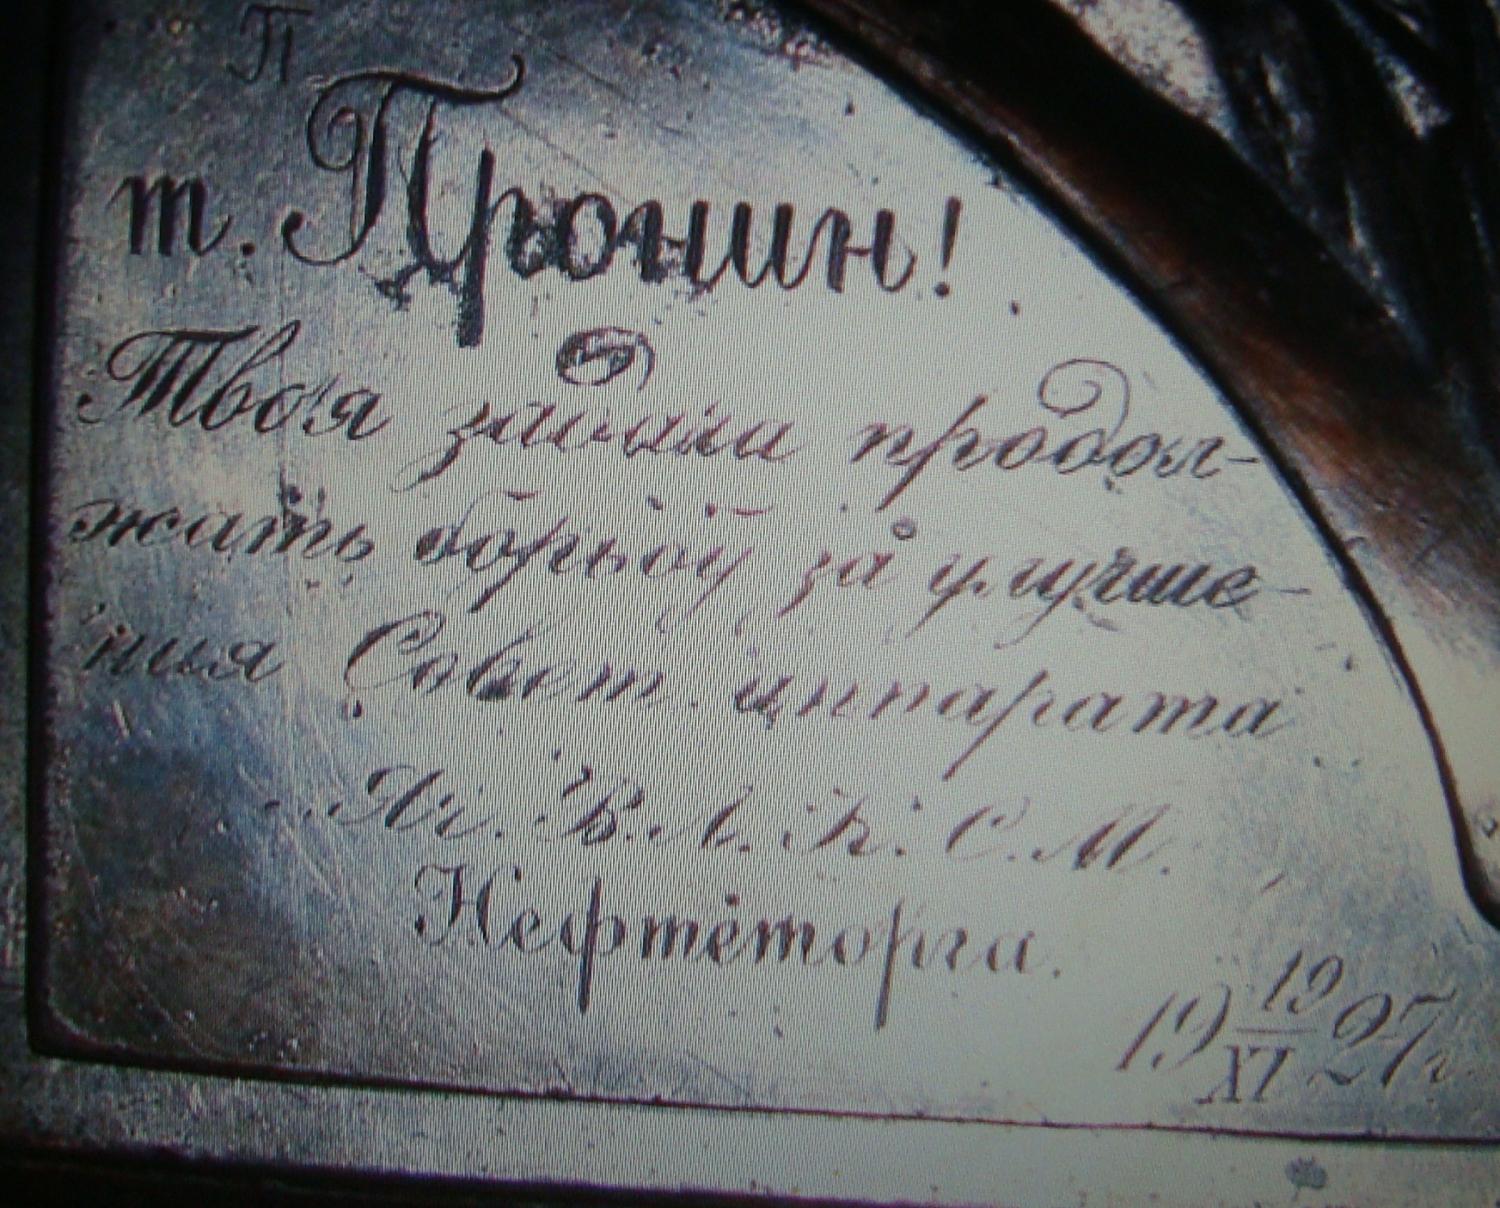 П
т. Пронин!
Твоя задача продол-
жать борьбу за улучше-
ния Совет. аппарата
Яч. В. Л. К. С. М.
Нефтеторга.
19 19/XI 27г.